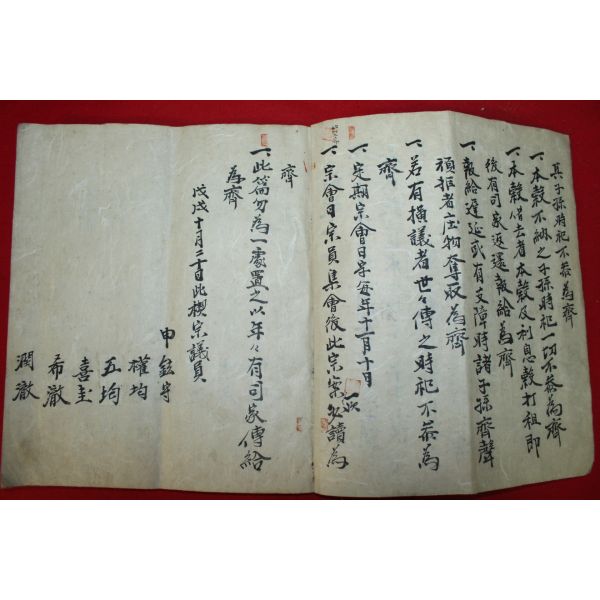 其子孫時祀不恭為齊
一、本穀不納之子孫時祀一切不恭為齊
一、本穀借去者本穀及利息穀打租即
後有司家返還報給為齊
一、報給遲延或有支障時諸子孫齊聲
頑拒者庄物奪取為齊
一、若有橫議者世々傳之時祀不恭為
齊
一、定期宗會日字每年十一月十日
一、宗會日宗員集會後此宗案必讀為
齊
一、此篇勿為一處置之以年々有司家傳給
為齊
戊戌十月二十日此稧宗議員
申鉉守
權均
五均
喜圭
希澈
潤澈